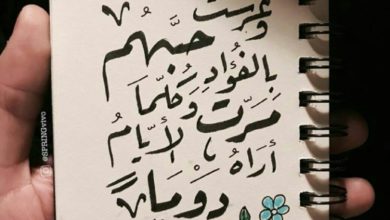 وغرست
حبّهم
بالفؤادِ وكلّما
مَرّت الأيّامُ
أراهُ
دَوماً
@SPRINGvivo